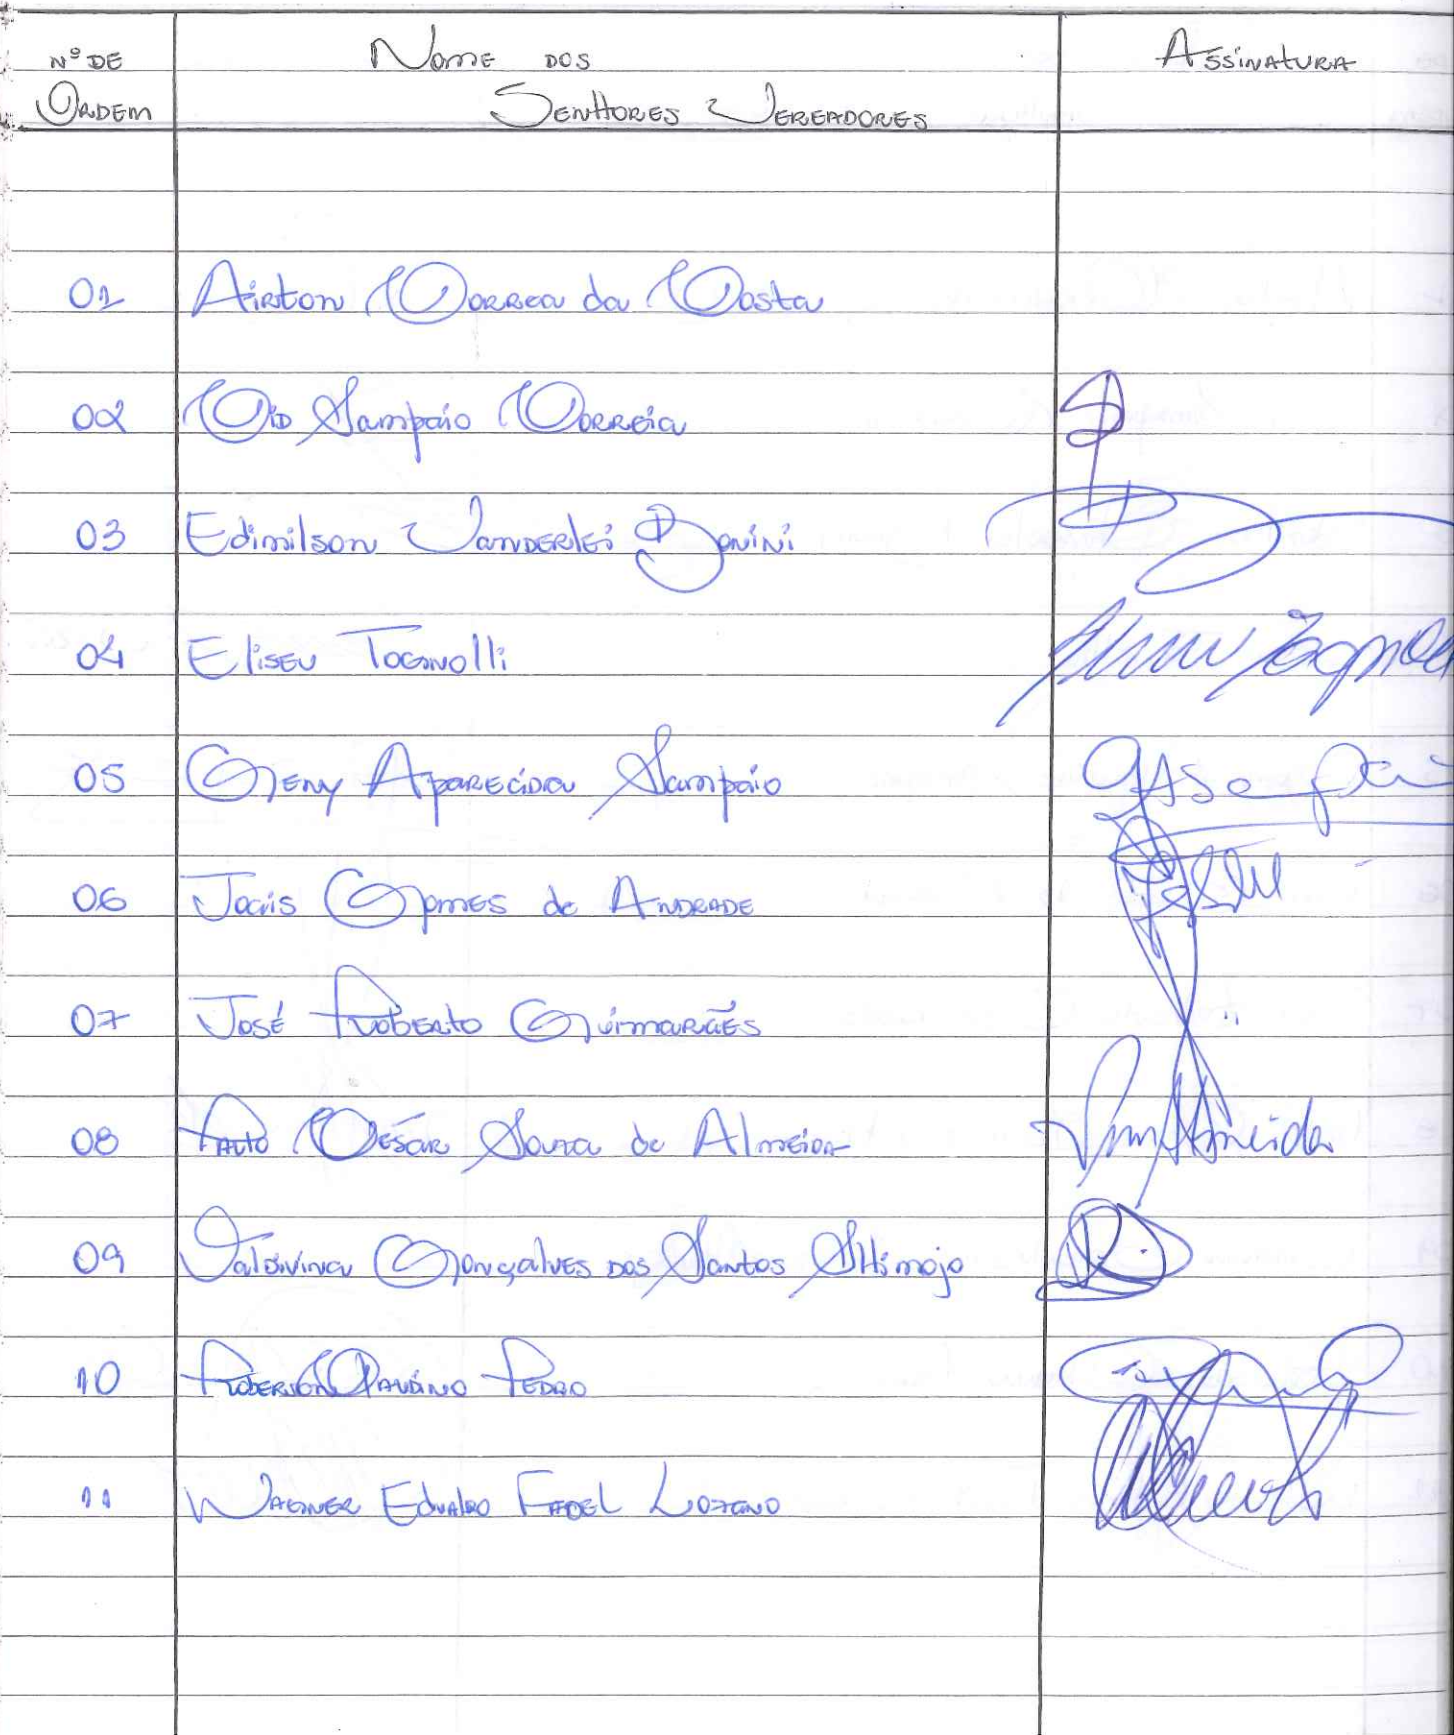 Nº DE Nome dos Assinatura
Ordem Senhores Vereadores
01 Airton Correa da Costa
02 Cid Sampaio Correia
03 Edimilson Vanderlei Bonini
04 Eliseu Tognolli
05 Geny Aparecida Sampaio
06 Jacis Gomes de Andrade
07 José Roberto Guimarães
08 Paulo César Souza de Almeida
09 Valdivina Gonçalves dos Santos Shimojo
10 Roberson Claudino Pedro
11 Wagner Eduardo Fadel Lozano